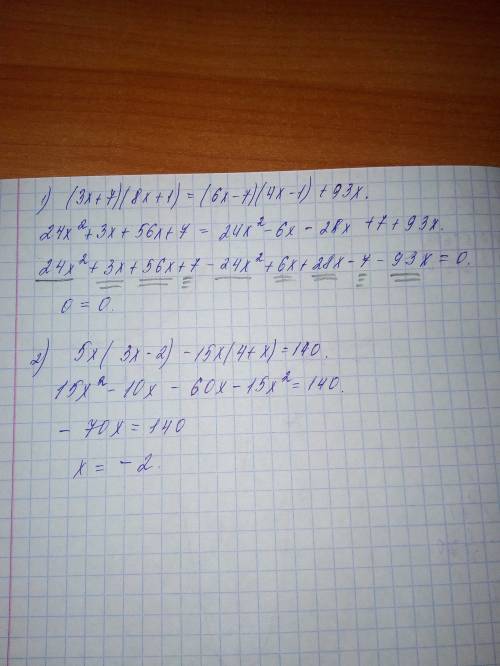 1) (3x+7)(8x+1) = (6x-7)(4x-1) +93x.
24x²+3x+56x+7 = 24x²-6x - 28x +7+93x.
24x²+3x+56x+7-24x²+6x+28x-7-93x = 0.
0 = 0.
2) 5x( 3x-2) -15x(4+x)=140.
15x²-10x - 60x-15x²=140.
- 70x = 140
x = - 2.